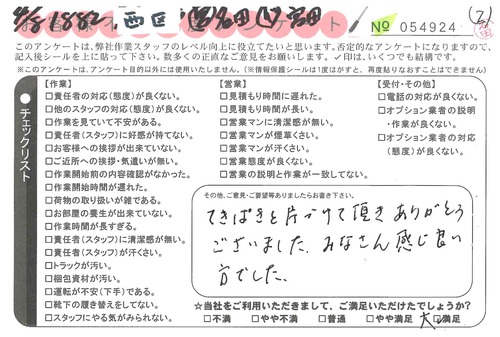 4/8 1882 西区
№ 054924
このアンケートは、弊社作業スタッフのレベル向上に役立てたいと思います。否定的なアンケートになりますので、
記入後シールを上に貼って下さい。数多くの正直なご意見をお願いします。✓印は、いくつでも結構です。
※このアンケートは、アンケート目的以外には使用いたしません。(※情報保護シールは1度はがすと、再度貼りなおすことはできません)
●チェックリスト
【作業】
□責任者の対応(態度)が良くない。
□他のスタッフの対応(態度)が良くない。
□作業を見ていて不安がある。
□責任者(スタッフ)に好感が持てない。
□お客様への挨拶が出来ていない。
□ご近所への挨拶・気遣いが無い。
□作業開始前の内容確認がなかった。
□作業開始時間が遅れた。
□荷物の取り扱いが雑である。
□お部屋の養生が出来ていない。
□作業時間が長すぎる。
□責任者(スタッフ)に清潔感が無い。
□責任者(スタッフ)が汗くさい。
□トラックが汚い。
□梱包資材が汚い。
□運転が不安(下手)である。
□靴下の履き替えをしてない。
□スタッフにやる気がみられない。
【営業】
□見積もり時間に遅れた。
□見積もり時間が長い。
□営業マンに清潔感が無い。
□営業マンが煙草くさい。
□営業マンが汗くさい。
□営業態度が良くない。
□営業の説明と作業が一致してない。
【受付・その他】
□電話の対応が良くない。
□オプション業者の説明
・作業が良くない。
□オプション業者の対応
(態度)が良くない。
その他、ご意見・ご要望等ありましたらお書き下さい。
てきぱきと片づけて頂きありがとう
ございました。みなさん感じ良い
方でした。
☆当社をご利用いただきまして、ご満足いただけたでしょうか?
□不満 □やや不満 □普通 □やや満足 大☑満足